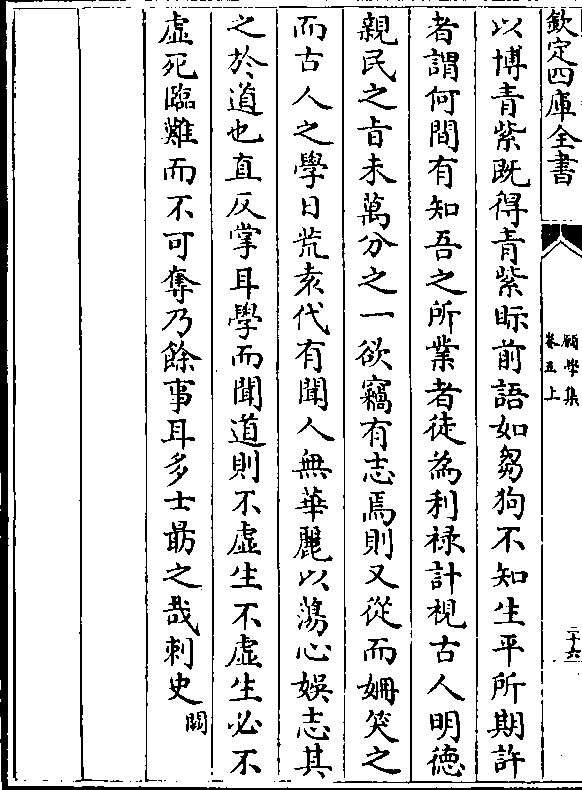 欽定四庫全書
願學集
卷五上
二十六
以博青紫既得青紫眎前語如芻狗不知生平所期許
者謂何間有知吾之所業者徒為利祿計視古人明德
親民之旨未萬分之一欲竊有志焉則又從而姍笑之
而古人之學日荒袁代有聞人無華麗以蕩心娛志其
之於道也直反掌耳學而聞道則不虛生不虛生必不
虛死臨難而不可奪乃餘事耳多士勗之哉刺史闕